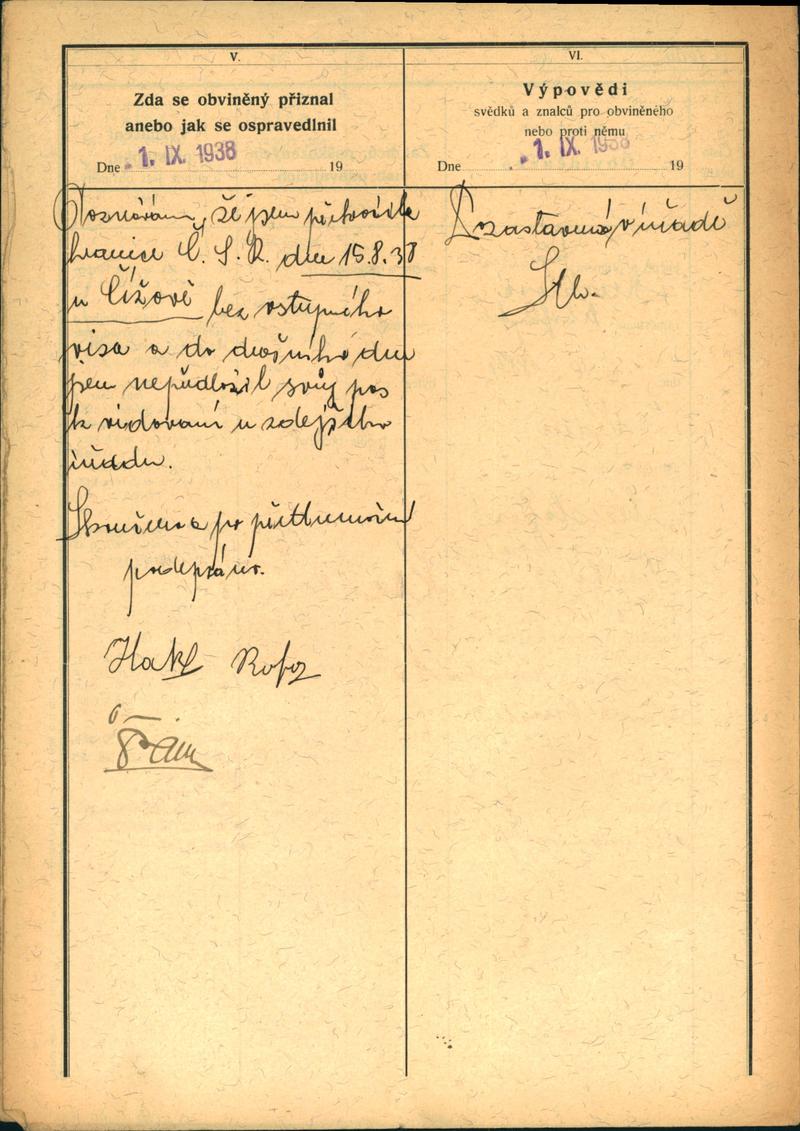 V.
Zda se obviněný přiznal
anebo jak se ospravedlnil
Dne 1. IX. 1938 19
že jsem překročila
hranice Č. S. R. dne 15.8.38
u Čížově bez vstupního
visa a do dnešního dne
jsem nepředložil svůj pas
k vidování u zdejšího
úřadu.
Skončeno a po přetlumočení
podepsáno.
VI.
Výpovědi
svědků a znalců pro obviněného
nebo proti němu
Dne 1. IX. 1938 19
zastavena v úřadě